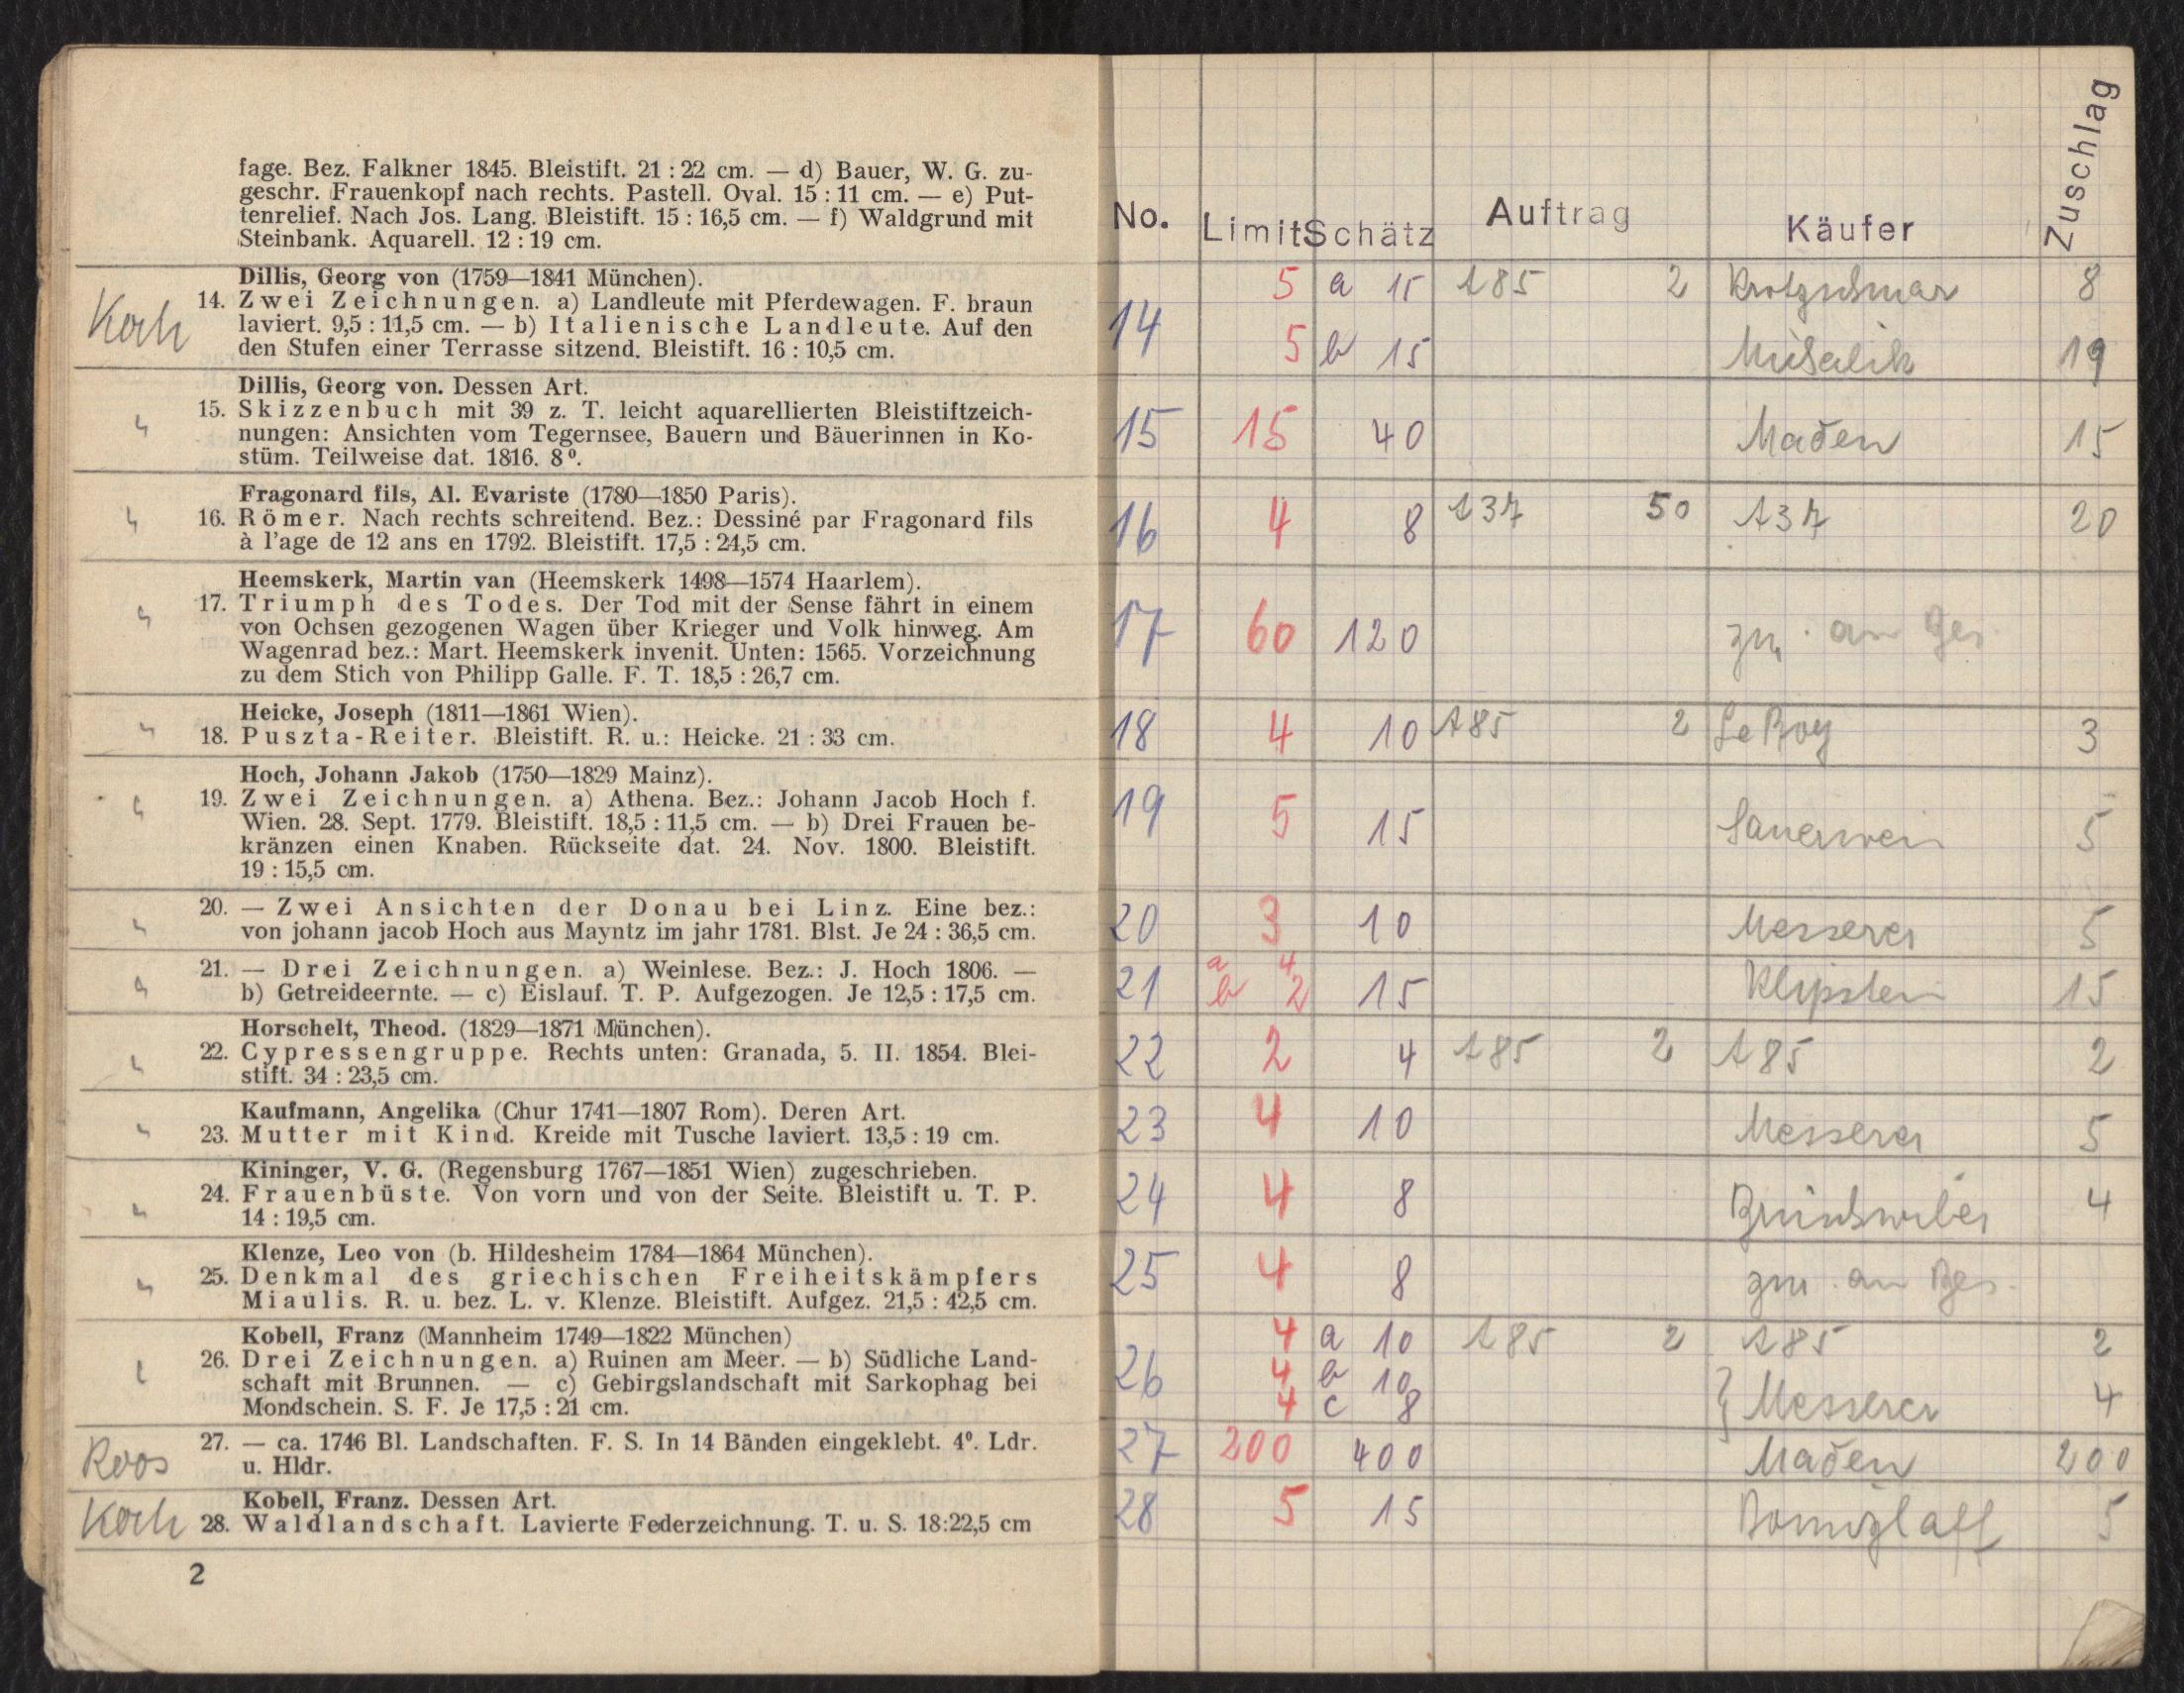 fage. Bez. Falkner 1845. Bleistift. 21 : 22 cm. — d) Bauer, W. G. zu-
geschr. Frauenkopf nach rechts. Pastell. Oval. 15 : 11 cm. — e) Put-
tenrelief. Nach Jos. Lang. Bleistift. 15 : 16,5 cm. — f) Waldgrund mit
Steinbank. Aquarell. 12 : 19 cm.
Dillis, Georg von (1759—1841 München).
Koch 14. Zwei Zeichnungen. a) Landleute mit Pferdewagen. F. braun
laviert. 9,5 : 11,5 cm. — b) Italienische Landleute. Auf den
den Stufen einer Terrasse sitzend. Bleistift. 16 : 10,5 cm.
Dillis, Georg von. Dessen Art.
15. Skizzenbuch mit 39 z. T. leicht aquarellierten Bleistiftzeich-
nungen: Ansichten vom Tegernsee, Bauern und Bäuerinnen in Ko-
stüm. Teilweise dat. 1816. 8⁰.
Fragonard fils, Al. Evariste (1780—1850 Paris).
16. Römer. Nach rechts schreitend. Bez.: Dessiné par Fragonard fils
à l'age de 12 ans en 1792. Bleistift. 17,5 : 24,5 cm.
Heemskerk, Martin van (Heemskerk 1498—1574 Haarlem).
17. Triumph des Todes. Der Tod mit der Sense fährt in einem
von Ochsen gezogenen Wagen über Krieger und Volk hinweg. Am
Wagenrad bez.: Mart. Heemskerk invenit. Unten: 1565. Vorzeichnung
zu dem Stich von Philipp Galle. F. T. 18,5 : 26,7 cm.
Heicke, Joseph (1811—1861 Wien).
18. Puszta-Reiter. Bleistift. R. u.: Heicke. 21 : 33 cm.
Hoch, Johann Jakob (1750—1829 Mainz).
19. Zwei Zeichnungen. a) Athena. Bez.: Johann Jacob Hoch f.
Wien. 28. Sept. 1779. Bleistift. 18,5 : 11,5 cm. — b) Drei Frauen be-
kränzen einen Knaben. Rückseite dat. 24. Nov. 1800. Bleistift.
19 : 15,5 cm.
20. — Zwei Ansichten der Donau bei Linz. Eine bez.:
von johann jacob Hoch aus Mayntz im jahr 1781. Blst. Je 24 : 36,5 cm.
21. — Drei Zeichnungen. a) Weinlese. Bez.: J. Hoch 1806. —
b) Getreideernte. — c) Eislauf. T. P. Aufgezogen. Je 12,5 : 17,5 cm.
Horschelt, Theod. (1829—1871 München).
22. Cypressengruppe. Rechts unten: Granada, 5. II. 1854. Blei-
stift. 34 : 23,5 cm.
Kaufmann, Angelika (Chur 1741—1807 Rom). Deren Art.
23. Mutter mit Kind. Kreide mit Tusche laviert. 13,5 : 19 cm.
Kininger, V. G. (Regensburg 1767—1851 Wien) zugeschrieben.
24. Frauenbüste. Von vorn und von der Seite. Bleistift u. T. P.
14 : 19,5 cm.
Klenze, Leo von (b. Hildesheim 1784—1864 München).
25. Denkmal des griechischen Freiheitskämpfers
Miaulis. R. u. bez. L. v. Klenze. Bleistift. Aufgez. 21,5 : 42,5 cm.
Kobell, Franz (Mannheim 1749—1822 München)
26. Drei Zeichnungen. a) Ruinen am Meer. — b) Südliche Land-
schaft mit Brunnen. — c) Gebirgslandschaft mit Sarkophag bei
Mondschein. S. F. Je 17,5 : 21 cm.
Roos 27. — ca. 1746 Bl. Landschaften. F. S. In 14 Bänden eingeklebt. 4⁰. Ldr.
u. Hldr.
Kobell, Franz. Dessen Art.
Koch 28. Waldlandschaft. Lavierte Federzeichnung. T. u. S. 18:22,5 cm
2
No. Limit Schätz Auftrag Käufer Zuschlag
14 5 a 15 185 2 8
5 b 15 19
15 15 40 Maden 15
16 4 8 137 50 137 20
17 60 120 zur. an Bes
18 4 10 185 2 Le Roy 3
19 5 15 Sauerwein 5
20 3 10 Messerer 5
21 a 4 b 2 15 Klipstein 15
22 2 4 185 2 185 2
23 4 10 Messerer 5
24 4 8 4
25 4 8 zur. an Bes.
26 4 a 10 185 2 185 2
4 b 10
4 c 8 } Messerer 4
27 200 400 Maden 200
28 5 15 5